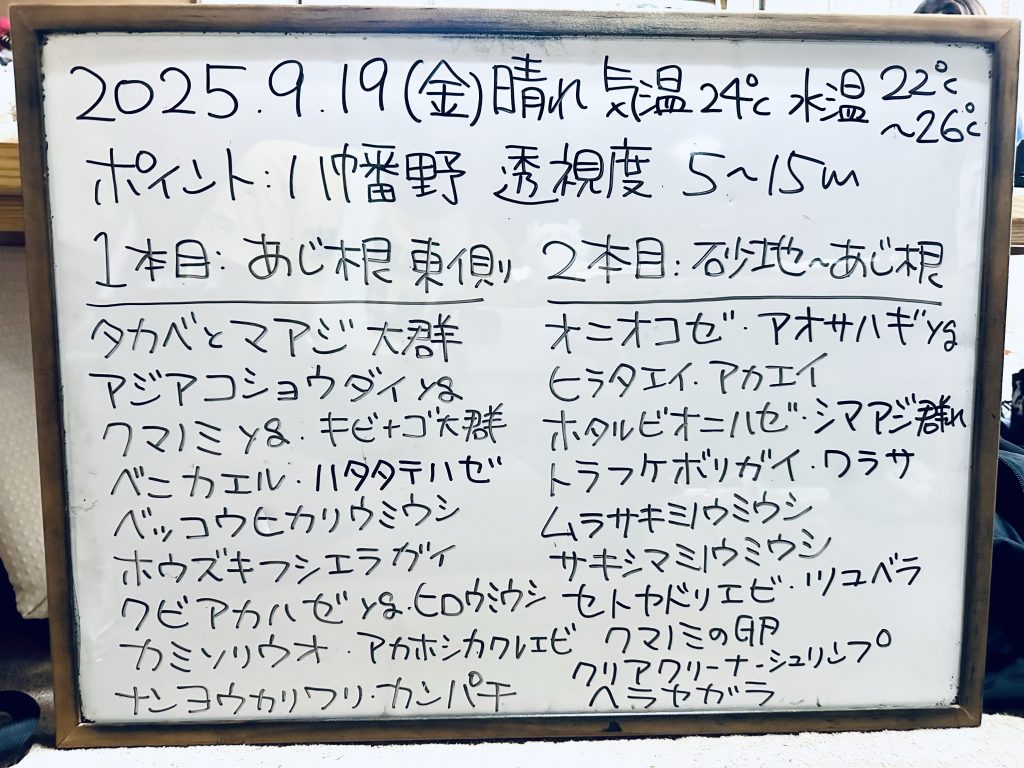 2025.9.19(金)晴れ 気温24℃ 水温 22℃
~26℃
ポイント: 八幡野 透視度 5~15m
1本目: あじ根 東側り
タカベとマアジ 大群
アジアコショウダイ yg
クマノミ yg・キビナゴ大群
ベニカエル・ハタタテハゼ
ベッコウヒカリウミウシ
ホウズキフシエラガイ
クビアカハゼ yg・ヒロウミウシ
カミソリウオ・アカホシカクレエビ
ナンヨウカイワリ・カンパチ
2本目: 砂地~あじ根
オニオコゼ・アオサハギyg
ヒラタエイ・アカエイ
ホタルビオニハゼ・シマアジ群れ
トラフケボリガイ・ワラサ
ムラサキミノウミウシ
サキシマミノウミウシ
セトヤドリエビ・ツユベラ
クマノミの卵
クリアクリーナーシュリンプ
ヘラヤガラ